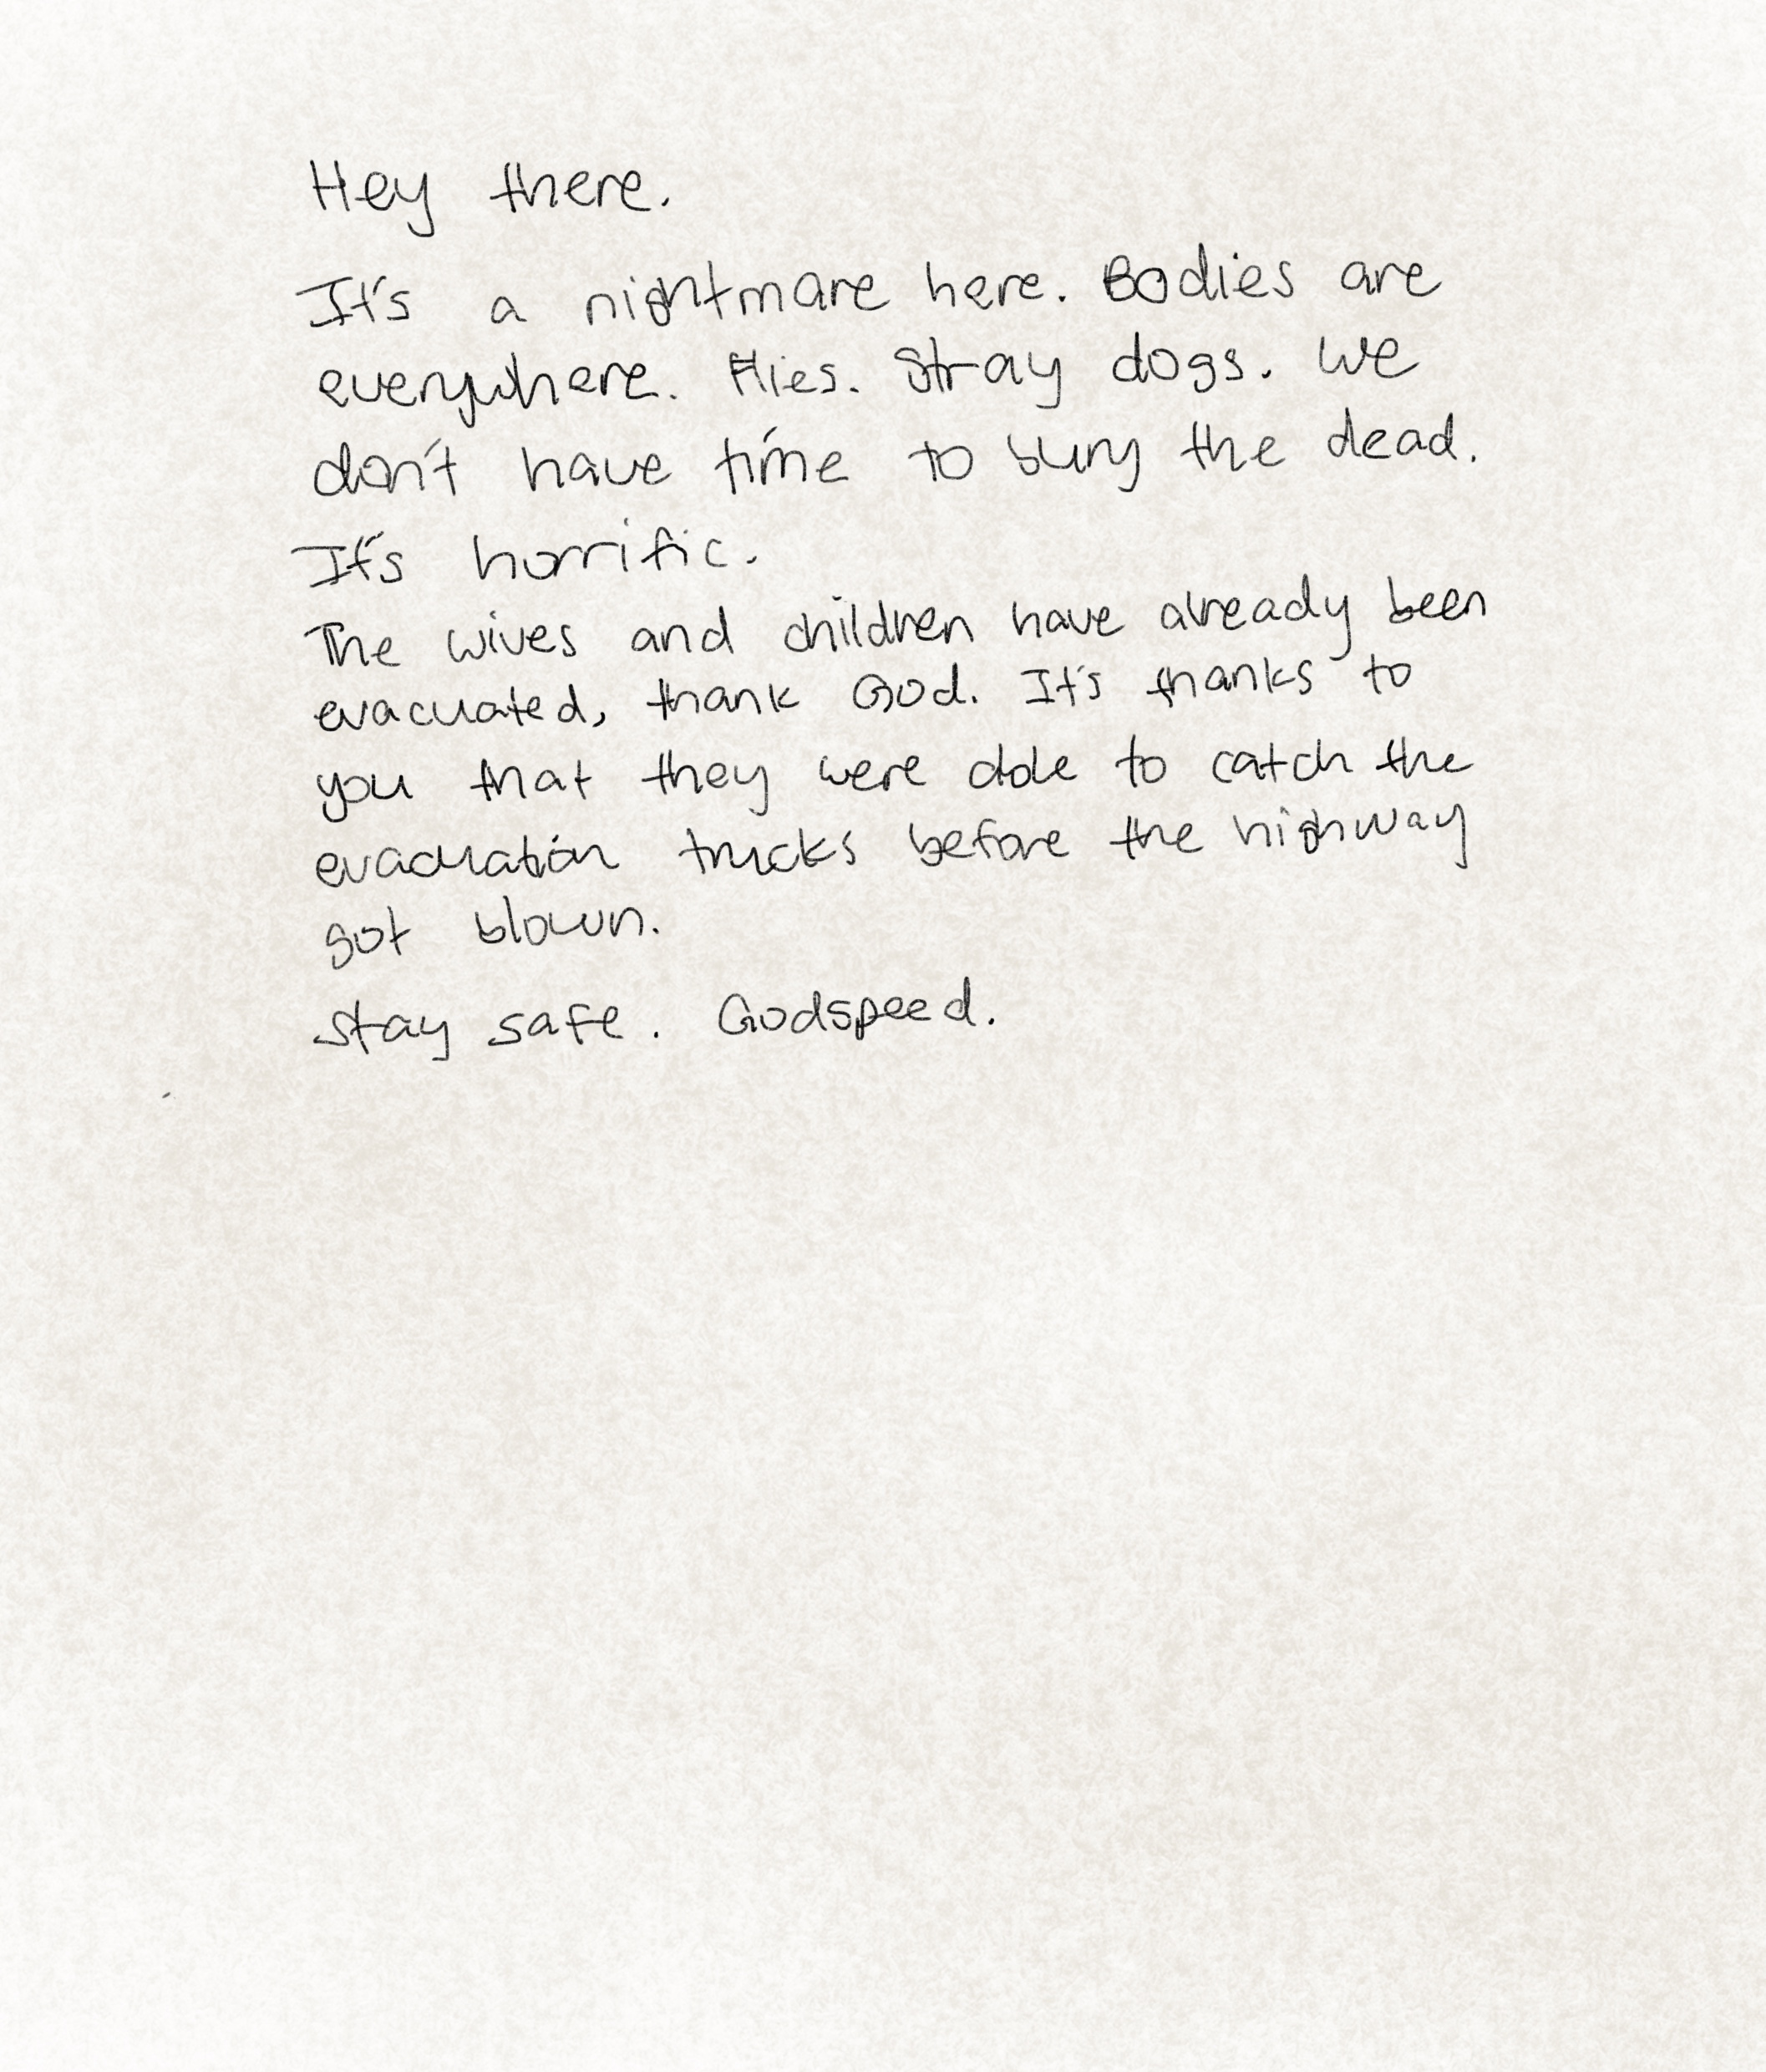 Hey there.
It's a nightmare here. Bodies are
everywhere. Flies. Stray dogs. We
don't have time to bury the dead.
It's horrific.
The wives and children have already been
evacuated, thank God. It's thanks to
you that they were able to catch the
evacuation trucks before the highway
got blown.
Stay safe. Godspeed.